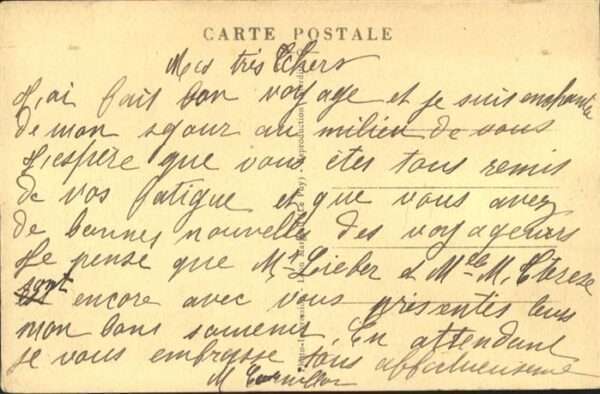 CARTE POSTALE
Mes très Chers
J'ai fait bon voyage et je suis enchantée
de mon sejour au milieu de vous
J'espère que vous êtes tous remis
de vos fatigue et que vous avez
de bonnes nouvelles des voyageurs
Je pense que Mr Lieber et Melle M. Therese
sont encore avec vous presentes leurs
mon bons souvenir. En attendant
je vous embrasse tous affectueusement
M